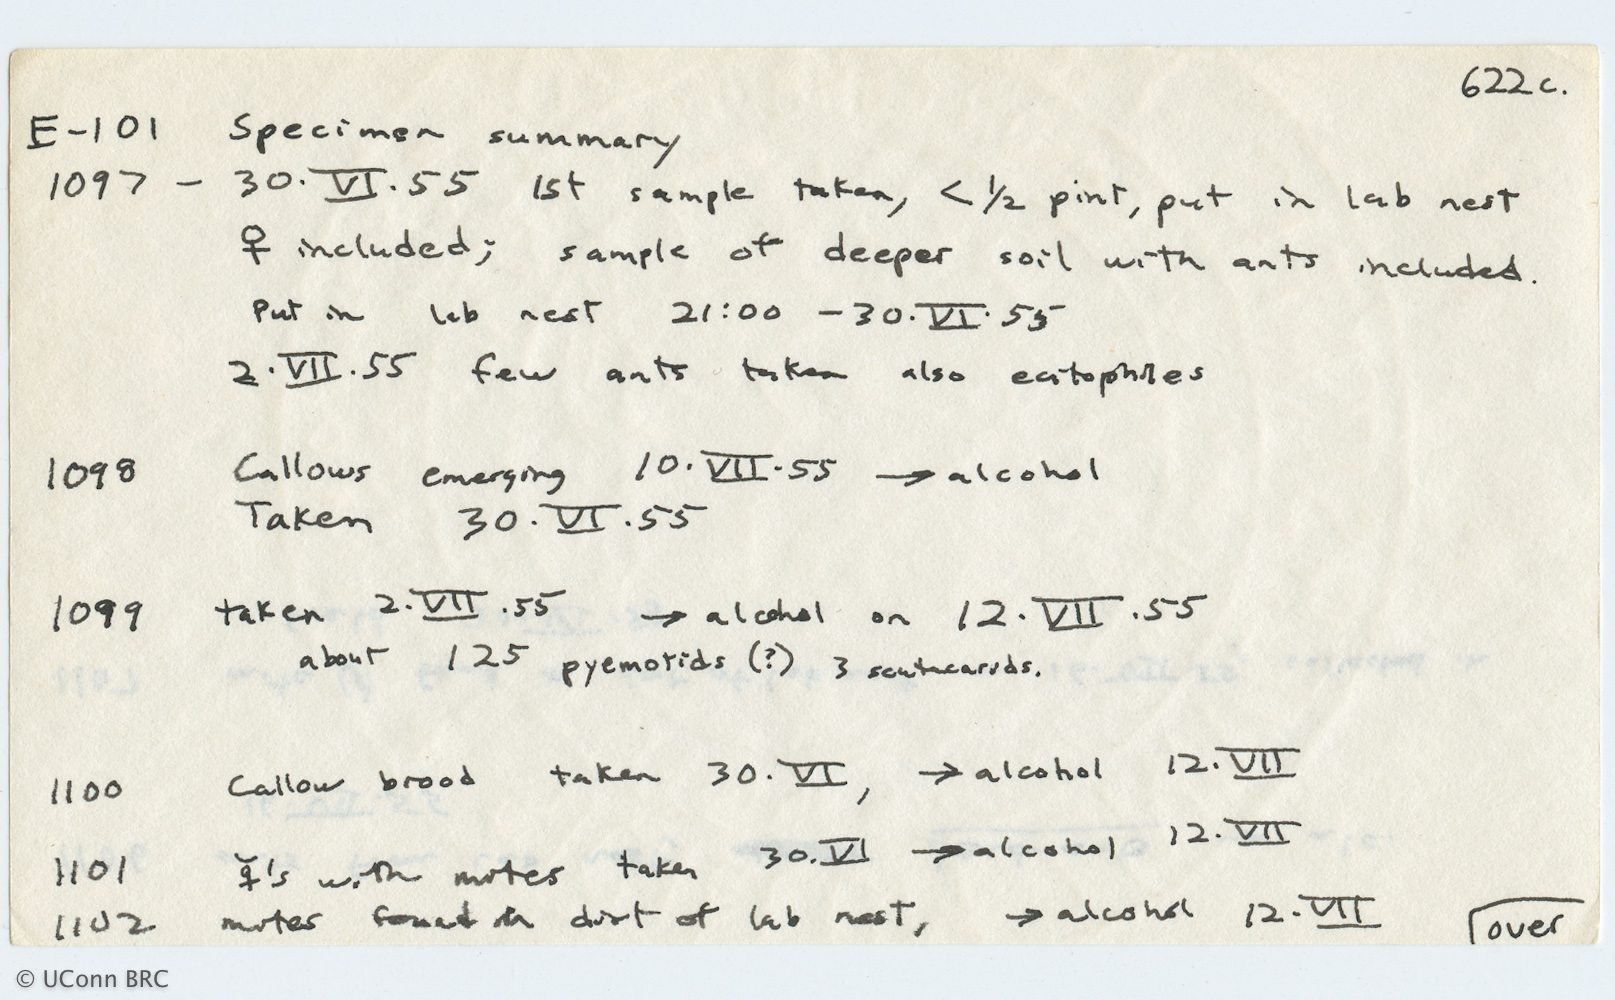 622c.
E-101 Specimen summary
1097 - 30.VI.55 1st sample taken, < 1/2 pint, put in lab nest
♀ included; sample of deeper soil with ants included.
Put in lab nest 21:00 - 30.VI.55
2.VII.55 few ants taken also ecitophiles
1098 Callows emerging 10.VII.55 → alcohol
Taken 30.VI.55
1099 taken 2.VII.55 → alcohol on 12.VII.55
about 125 pyemotids (?) 3 scutacarids.
1100 Callow brood taken 30.VI, → alcohol 12.VII
1101 ☿'s with mites taken 30.VI → alcohol 12.VII
1102 mites found in dirt of lab nest, → alcohol 12.VII
over
© UConn BRC